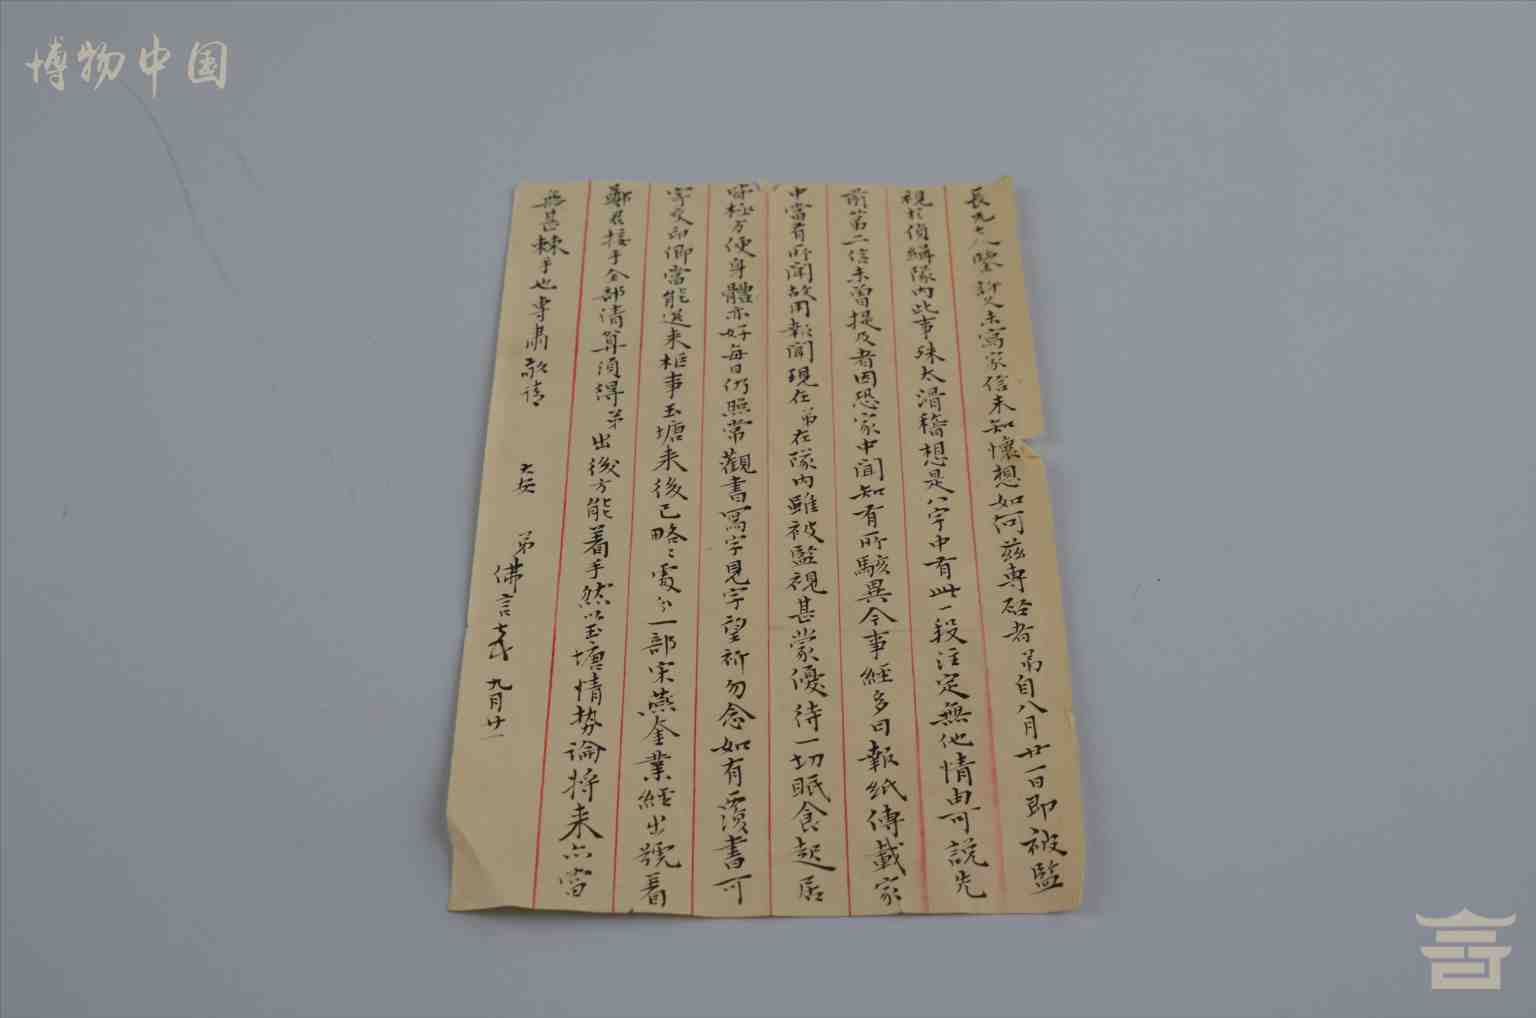 博物中国
長九大人鑒許久未寫家信未知懷想如何茲専啟者弟自八月廿一日即被監
視於偵緝隊內此事殊太滑稽想是八字中有此一段注定無他情由可說先
前第二信未曾提及者因恐家中聞知有所駭異今事經多日報紙傳載家
中當有所聞故用報聞現在弟在隊內雖被監視甚蒙優待一切眠食起居
皆極方便身體亦好每日仍照常觀書寫字見字望祈勿念如有覆書可
寄交印卿當能送來柜事玉塘来後已略々處分一部宋燕奎業經出號看
鄭君接手全部清算須得弟出後方能着手然以玉塘情势論將来亦當
無甚棘手也専肅敬請
大安
弟
佛言
九月廿一